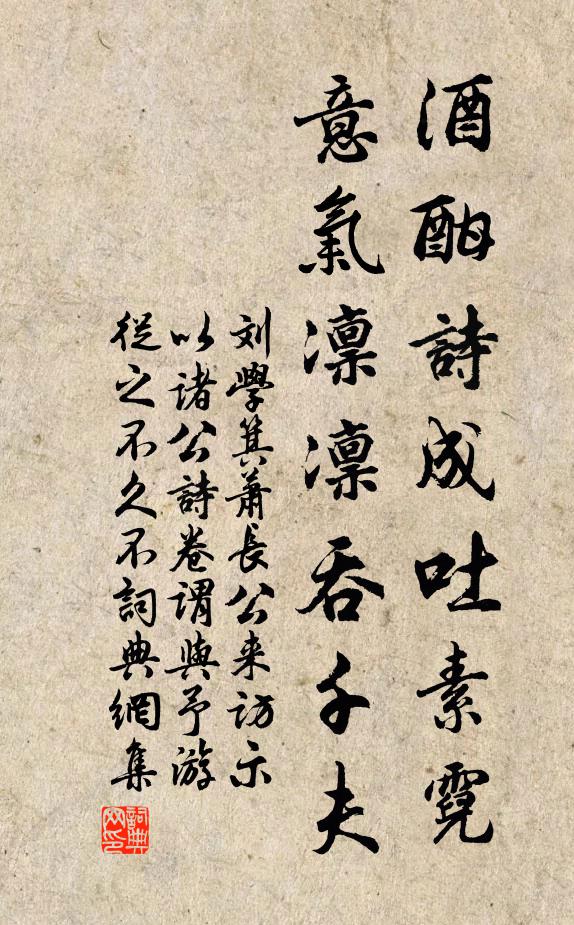 酒酣詩成吐素霓
意氣凛凛吞千夫
刘學箕萧長公来访示
以诸公詩卷謂與予游
從之不久不詞典網集
詞典
网印